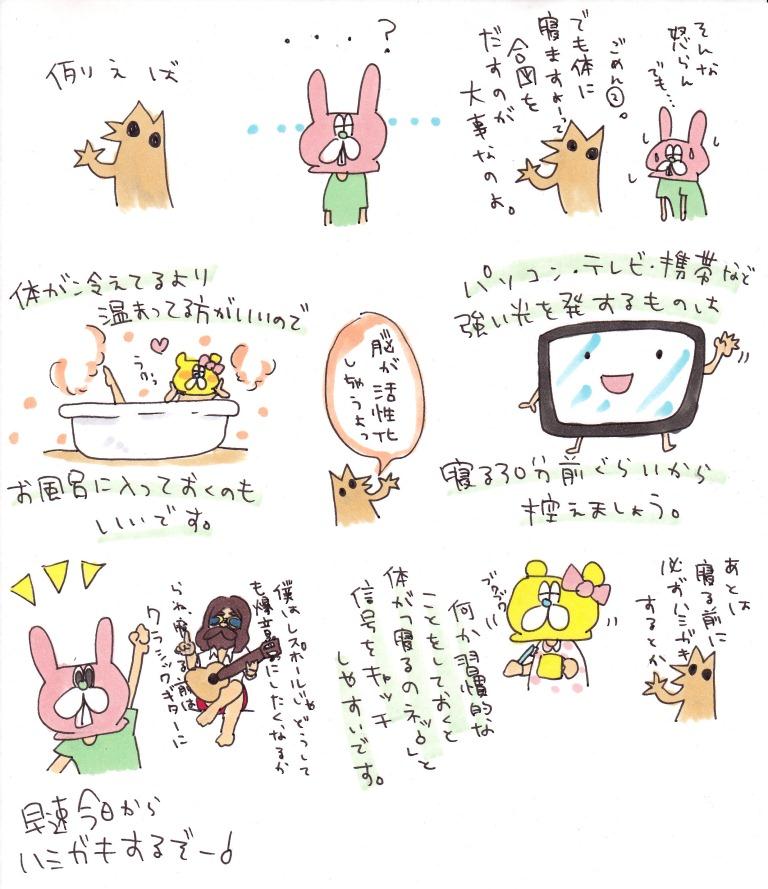 そんな
怒らん
でも…
ごめんごめん。
でも体に
寝ますよーって
合図を
だすのが
大事なのよ。
・・・・?
例えば
パソコン・テレビ・携帯など
強い光を発するものは
寝る30分前ぐらいから
控えましょう。
脳が活性化
しちゃうよっ
体が冷えてるより
温まってる方がいいので
うふっ
お風呂に入っておくのも
いいです。
あとは
寝る前に
必ずハミガキ
するとか
ブクブク
何か習慣的な
ことをしておくと
体がっ寝るのネッ!と
信号をキャッチ
しやすいです。
僕はレスポールじゃどうして
も爆音にしたくなるか
らね、寝る前は
クラシックギターに
早速今日から
ハミガキするぞーっ